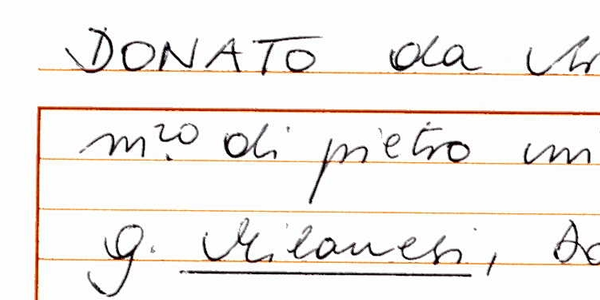 DONATO da
m.ro di pietro
g. Milanesi,